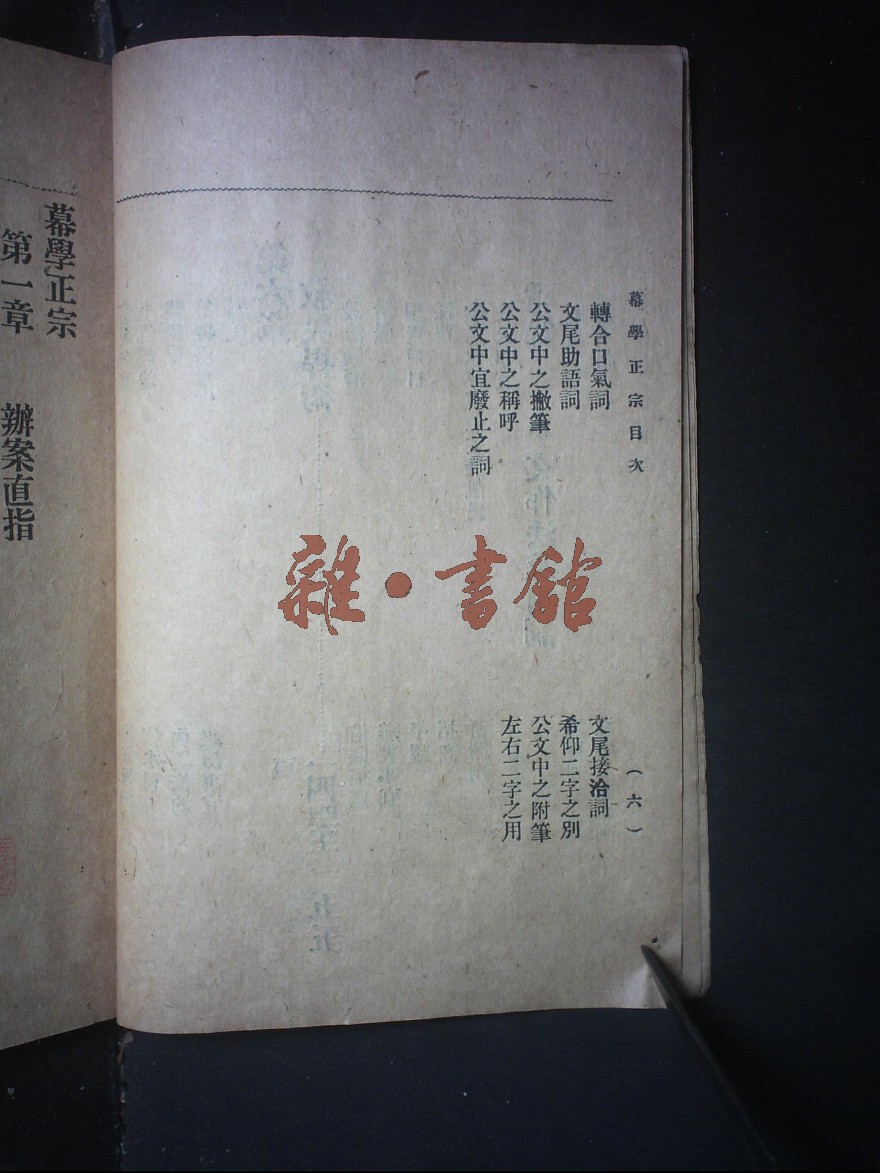 幕學正宗目次
(六)
轉合口氣詞
文尾接洽詞
文尾助語詞
希仰二字之別
公文中之撇筆
公文中之附筆
公文中之稱呼
左右二字之用
公文中宜廢止之詞
雜·書館
幕學正宗
第一章 辦案直指